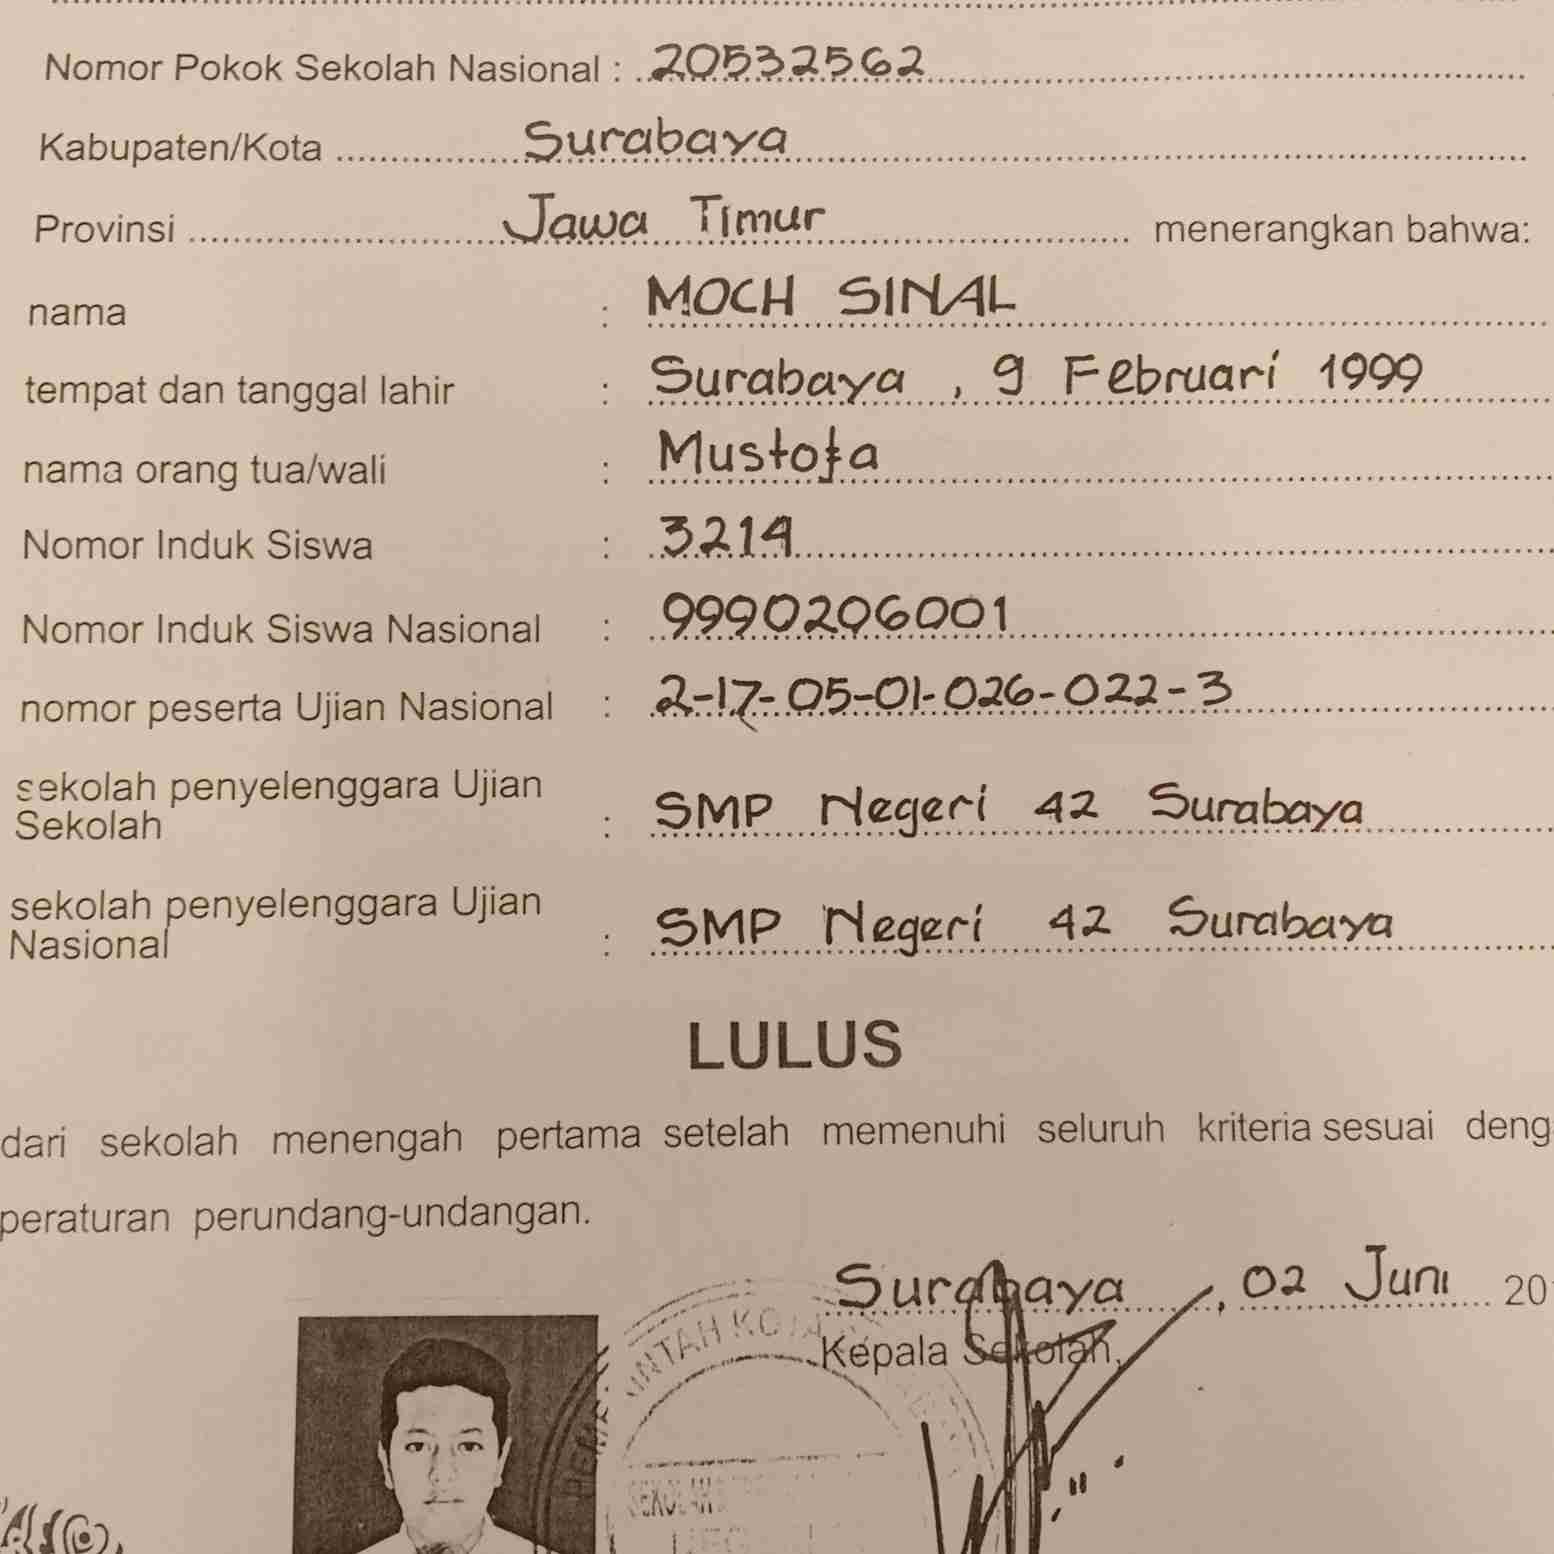 Nomor Pokok Sekolah Nasional : 20532562
Kabupaten/Kota Surabaya
Provinsi Jawa Timur menerangkan bahwa:
nama : MOCH SINAL
tempat dan tanggal lahir : Surabaya , 9 Februari 1999
nama orang tua/wali : Mustofa
Nomor Induk Siswa : 3214
Nomor Induk Siswa Nasional : 9990206001
nomor peserta Ujian Nasional : 2-17-05-01-026-022-3
sekolah penyelenggara Ujian
Sekolah : SMP Negeri 42 Surabaya
sekolah penyelenggara Ujian
Nasional : SMP Negeri 42 Surabaya
LULUS
dari sekolah menengah pertama setelah memenuhi seluruh kriteria sesuai deng
peraturan perundang-undangan.
Surabaya , 02 Juni 20
Kepala Sekolah,